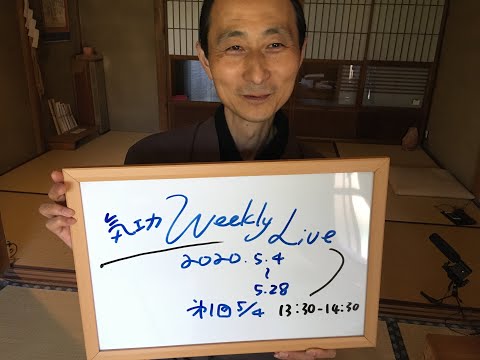 氣功 Weekly Live
2020.5.4
~
5.28
第1回 5/4 13:30-14:30